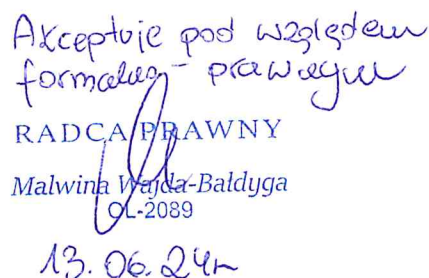 Akceptuję pod względem
formalno - prawnym
RADCA PRAWNY
Malwina Wajda-Bałdyga
OL-2089
13.06.24r